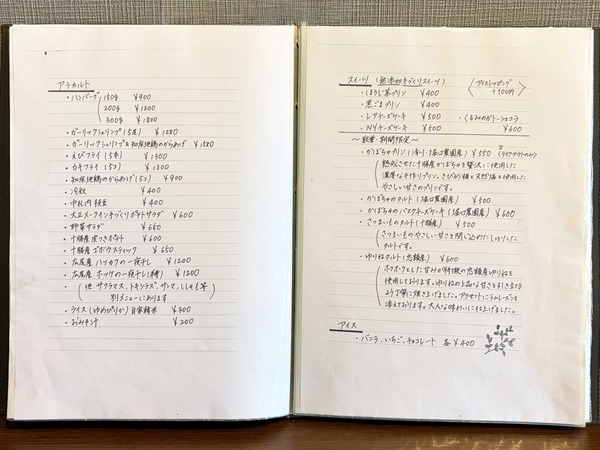 アラカルト
・ハンバーグ 150g ¥900
200g ¥1200
300g ¥1800
・ガーリックシュリンプ(5尾) ¥1280
・ガーリックシュリンプ&知床地鶏のからあげ ¥1580
・えびフライ(5本) ¥1300
・カキフライ(5コ) ¥1300
・知床地鶏のからあげ(5コ) ¥900
・冷奴 ¥400
・中札内枝豆 ¥400
・大正メークイン手づくりポテトサラダ ¥600
・野菜サラダ ¥650
・十勝産皮つきポテト ¥600
・十勝産ゴボウスティック ¥650
・広尾産ハッカクの一夜干し ¥1200
・広尾産ホッケの一夜干し(半身) ¥1200
・(他 サクラマス、トキシラズ、サンマ、ししゃも等
別メニューにあります
・ライス(ゆめぴりか)自家精米 ¥300
・おみそ汁 ¥200
スイーツ (無添加手づくりスイーツ)
〈アイストッピング
+100円〉
・ほうじ茶プリン ¥400
・黒ごまプリン ¥400
・レアチーズケーキ ¥500
・くるみのガトーショコラ
・NYチーズケーキ ¥500
¥600
〜数量・期間限定〜
・かぼちゃプリン(清川・堀口農園産) ¥550 (テイクアウトのみ)
熟成させた十勝産かぼちゃを贅沢に使用した
濃厚な手作りプリン。きび砂糖と天然塩を使用した
やさしい甘さのプリンです。
・かぼちゃのタルト(堀口農園産) ¥500
・かぼちゃのバスクチーズケーキ(堀口農園産) ¥600
・さつまいものタルト(十勝産) ¥500
さつまいものやさしい甘さを閉じ込めたしっとりした
タルトです。
・ゆりねタルト(忠類産) ¥600
ホクホクとした甘みが特徴の忠類産ゆりねを
使用しております。ゆりねの上品な甘さを引き立てる
よう丁寧に焼き上げました。アクセントにラムレーズンを
添えております。大人な味わいに仕上げました。
アイス
・バニラ、いちご、チョコレート 各¥400